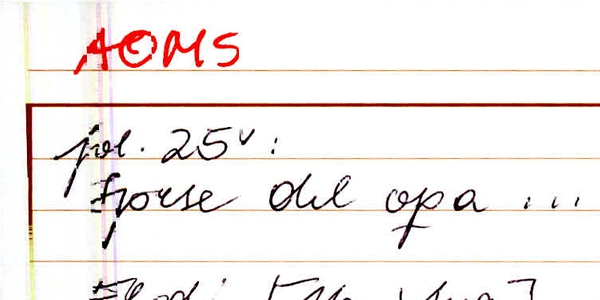 AOMS
fol. 25v:
Forse del opa ...